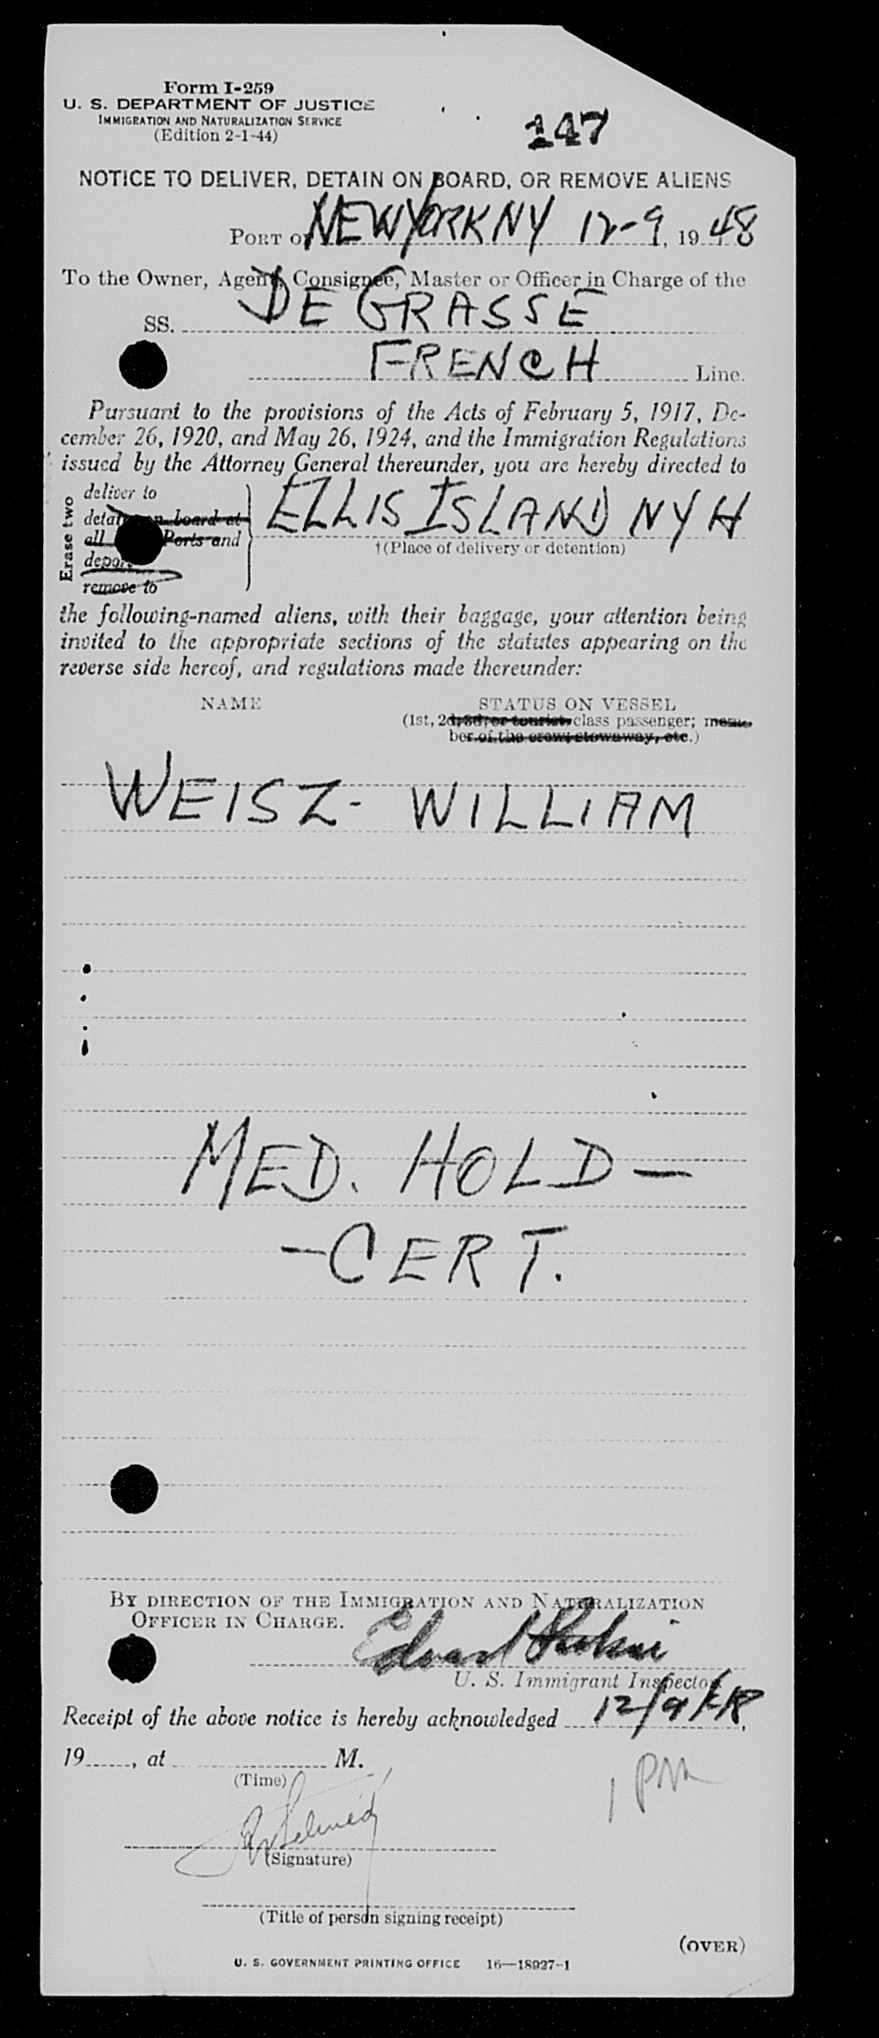 Form I-259
U. S. DEPARTMENT OF JUSTICE
IMMIGRATION AND NATURALIZATION SERVICE
(Edition 2-1-44)
147
NOTICE TO DELIVER, DETAIN ON BOARD, OR REMOVE ALIENS
PORT OF NEW YORK NY 12-9, 1948
To the Owner, Agent, Consignee, Master or Officer in Charge of the
SS. DE GRASSE
FRENCH Line.
Pursuant to the provisions of the Acts of February 5, 1917, De-
cember 26, 1920, and May 26, 1924, and the Immigration Regulations
issued by the Attorney General thereunder, you are hereby directed to
Erase two
deliver to
detain on board at
all Ports and
deport
remove to
ELLIS ISLAND NYH
†(Place of delivery or detention)
the following-named aliens, with their baggage, your attention being
invited to the appropriate sections of the statutes appearing on the
reverse side hereof, and regulations made thereunder:
NAME STATUS ON VESSEL
(1st, 2d, 3d, or tourist class passenger; mem-
ber of the crew, stowaway, etc.)
WEISZ - WILLIAM
MED. HOLD -
- CERT.
BY DIRECTION OF THE IMMIGRATION AND NATURALIZATION
OFFICER IN CHARGE.
Edward
U. S. Immigrant Inspector.
Receipt of the above notice is hereby acknowledged 12/9/48,
19, at M.
(Time)
1 PM
(Signature)
(Title of person signing receipt)
(OVER)
U. S. GOVERNMENT PRINTING OFFICE 16—18927-1